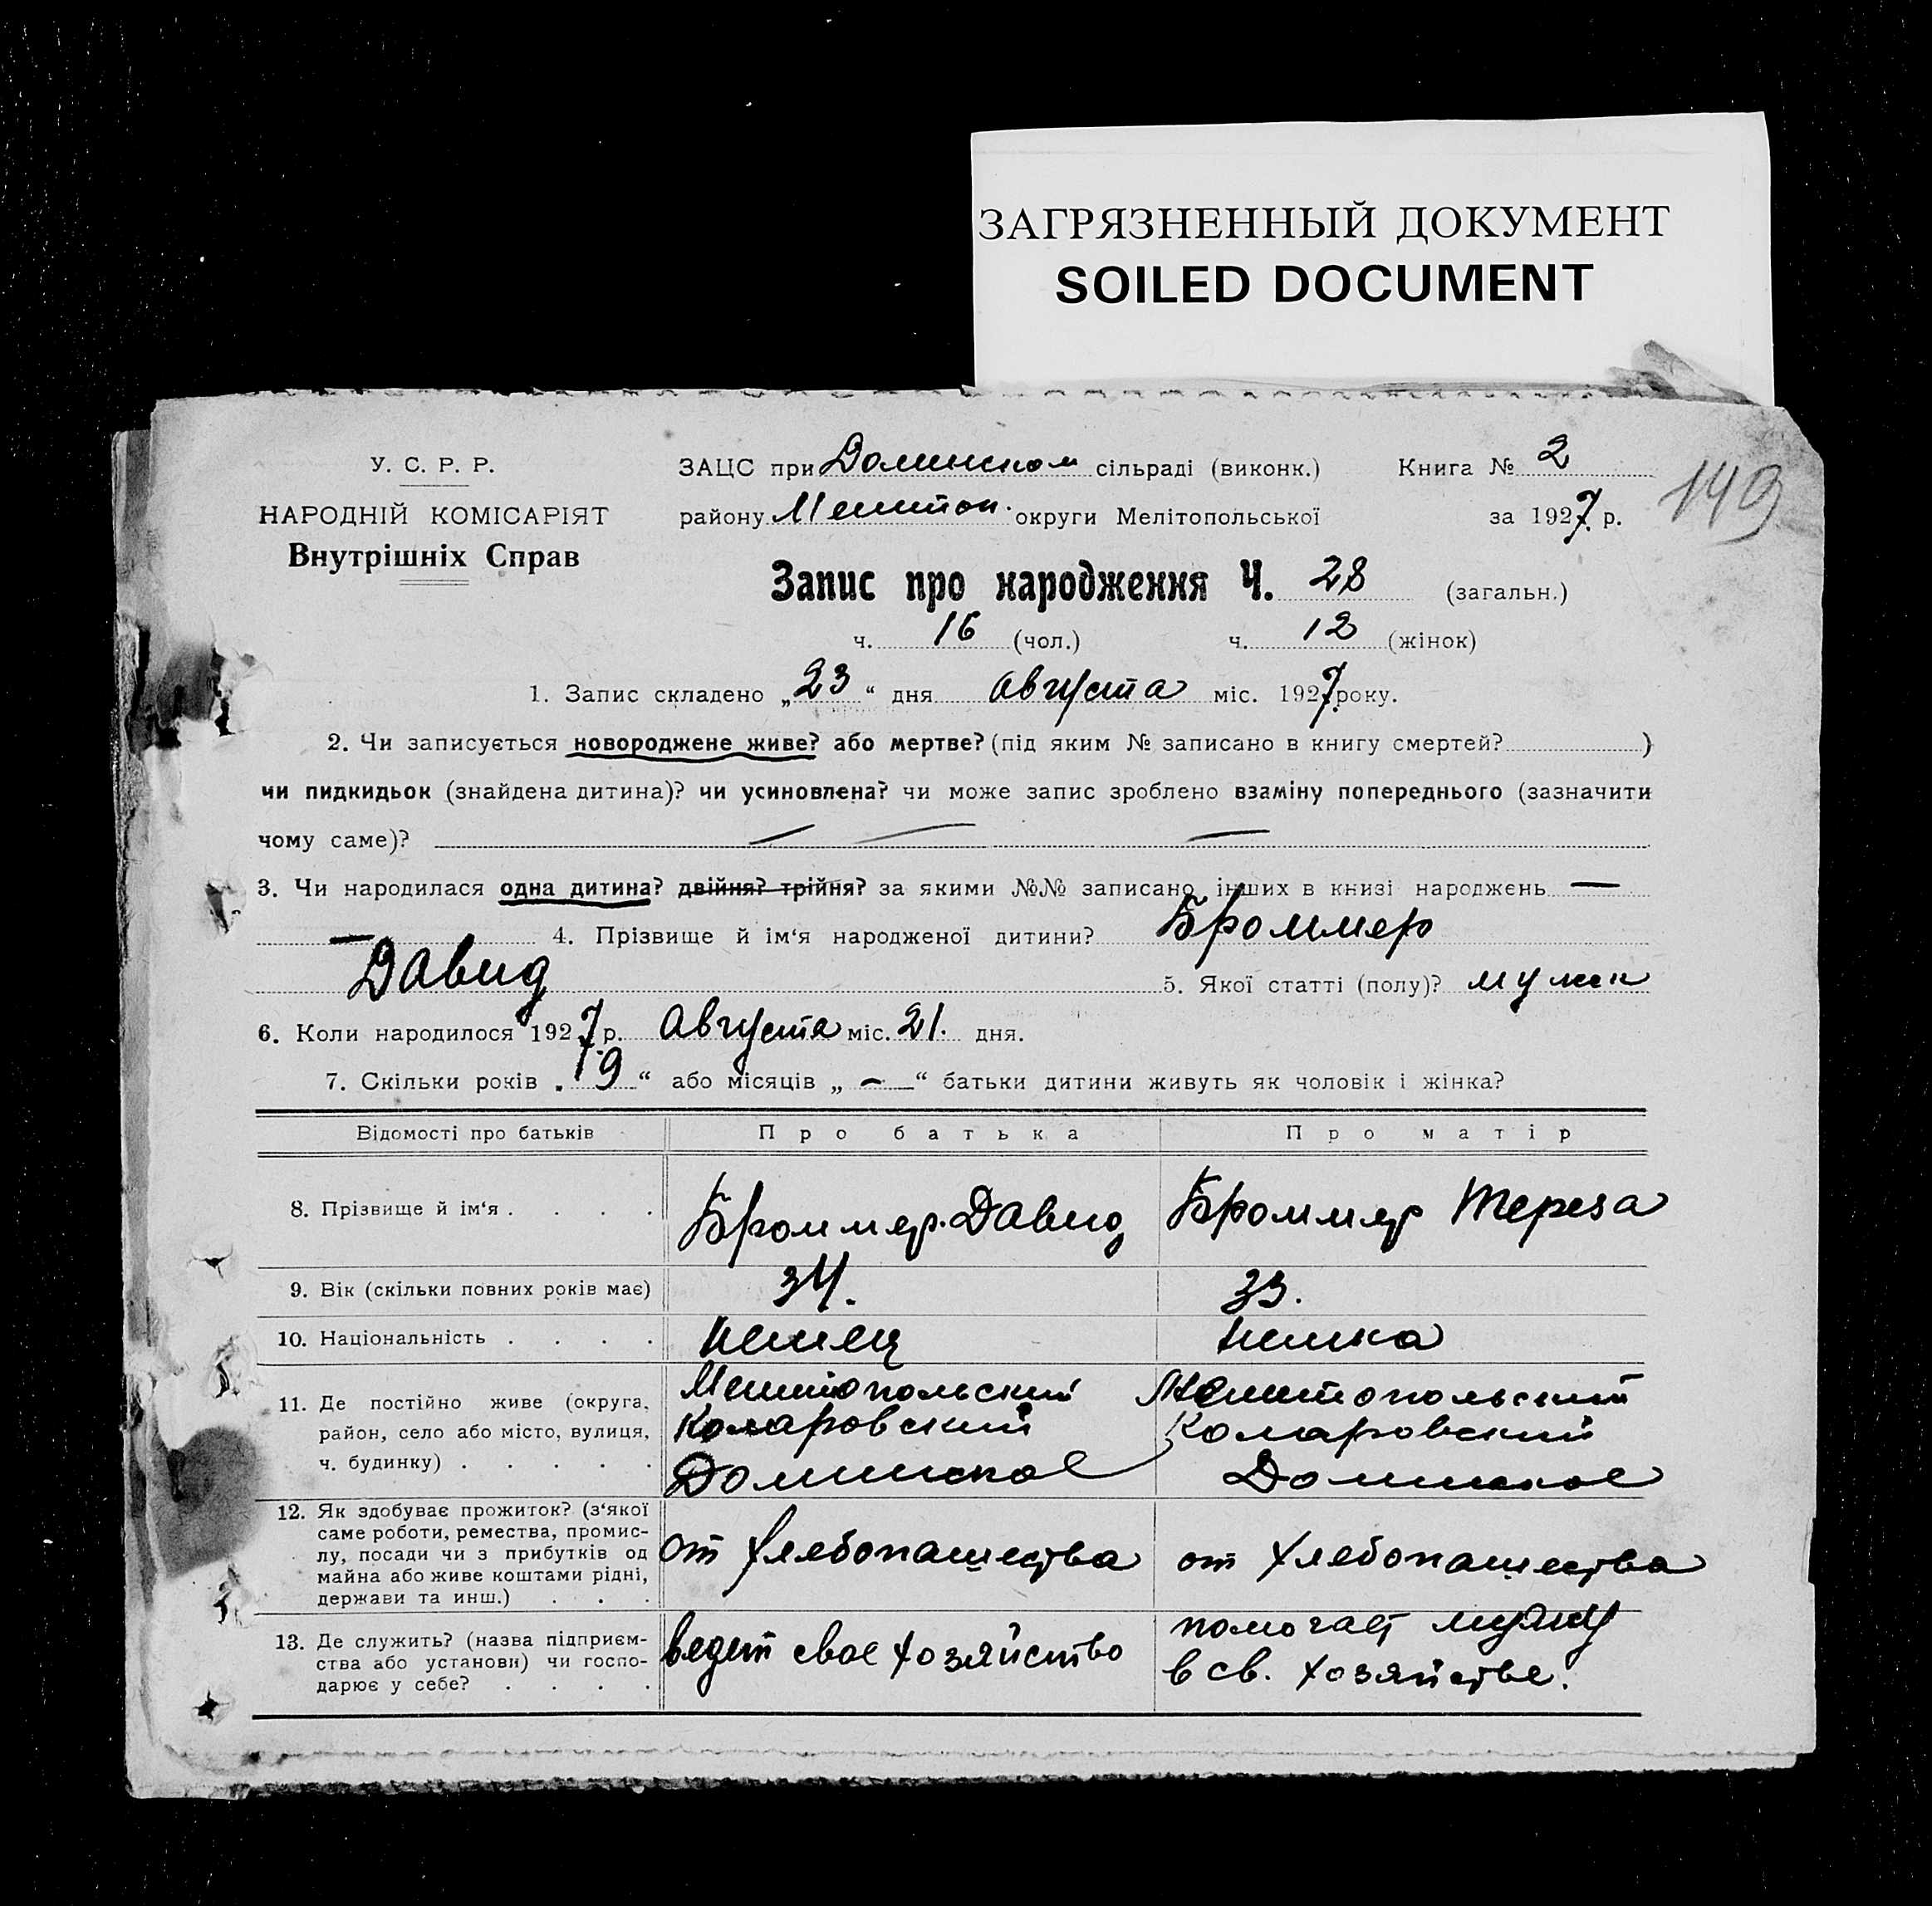 ЗАГРЯЗНЕННЫЙ ДОКУМЕНТ
SOILED DOCUMENT
149
У. С. Р. Р.
НАРОДНІЙ КОМІСАРІЯТ
Внутрішніх Справ
ЗАЦС при Долинском сільраді (виконк.) Книга № 2
району Мелитоп. округи Мелітопольської за 1927 р.
Запис про народження Ч. 28 (загальн.)
ч. 16 (чол.) ч. 12 (жінок)
1. Запис складено „23“ дня Августа міс. 1927 року.
2. Чи записується новороджене живе? або мертве? (під яким № записано в книгу смертей? )
чи пидкидьок (знайдена дитина)? чи усиновлена? чи може запис зроблено взаміну попереднього (зазначити
чому саме)? — — —
3. Чи народилася одна дитина? двійня? трійня? за якими №№ записано інших в книзі народжень —
— 4. Прізвище й ім‘я народженої дитини? Броммер
Давид 5. Якої статті (полу)? мужск
6. Коли народилося 1927 р. Августа міс. 21. дня.
7. Скільки років „19“ або місяців „—“ батьки дитини живуть як чоловік і жінка?
Відомості про батьків Про батька Про матір
8. Прізвище й ім‘я . . . . Броммер. Давид Броммер Тереза
9. Вік (скільки повних років має) 34. 33.
10. Національність . . . . немец немка
11. Де постійно живе (округа, Мелитопольский Мелитопольский
район, село або місто, вулиця, Комаровский Комаровский
ч. будинку) . . . . . Долинское Долинское
12. Як здобуває прожиток? (з‘якої
саме роботи, ремества, промис-
лу, посади чи з прибутків од от хлебопашества от хлебопашества
майна або живе коштами рідні,
держави та инш.) . . .
13. Де служить? (назва підприєм- ведет свое хозяйство помогает мужу
ства або установи) чи госпо- в св. хозяйстве.
дарює у себе? . . . .